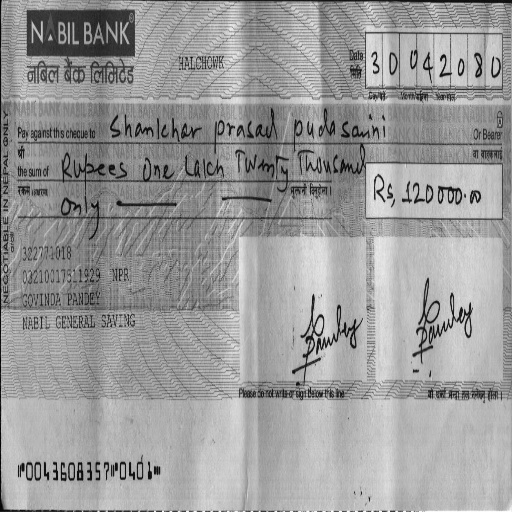 NABIL BANK
नबिल बैंक लिमिटेड
HALCHOWK
Date
मिति
30042080
Pay against this cheque to Shankhar prasad pudasaini Or Bearer
श्री वा वाहकलाई
the sum of Rupees One Lakh Twenty Thousand
only
Rs, 120000.00
NEGOTIABLE IN NEPAL ONLY
322771018
03210017511929 NPR
GOVINDA PANDEY
NABIL GENERAL SAVING
Pandey
Pandey
Please do not write or sign below this line
0043608357 0401